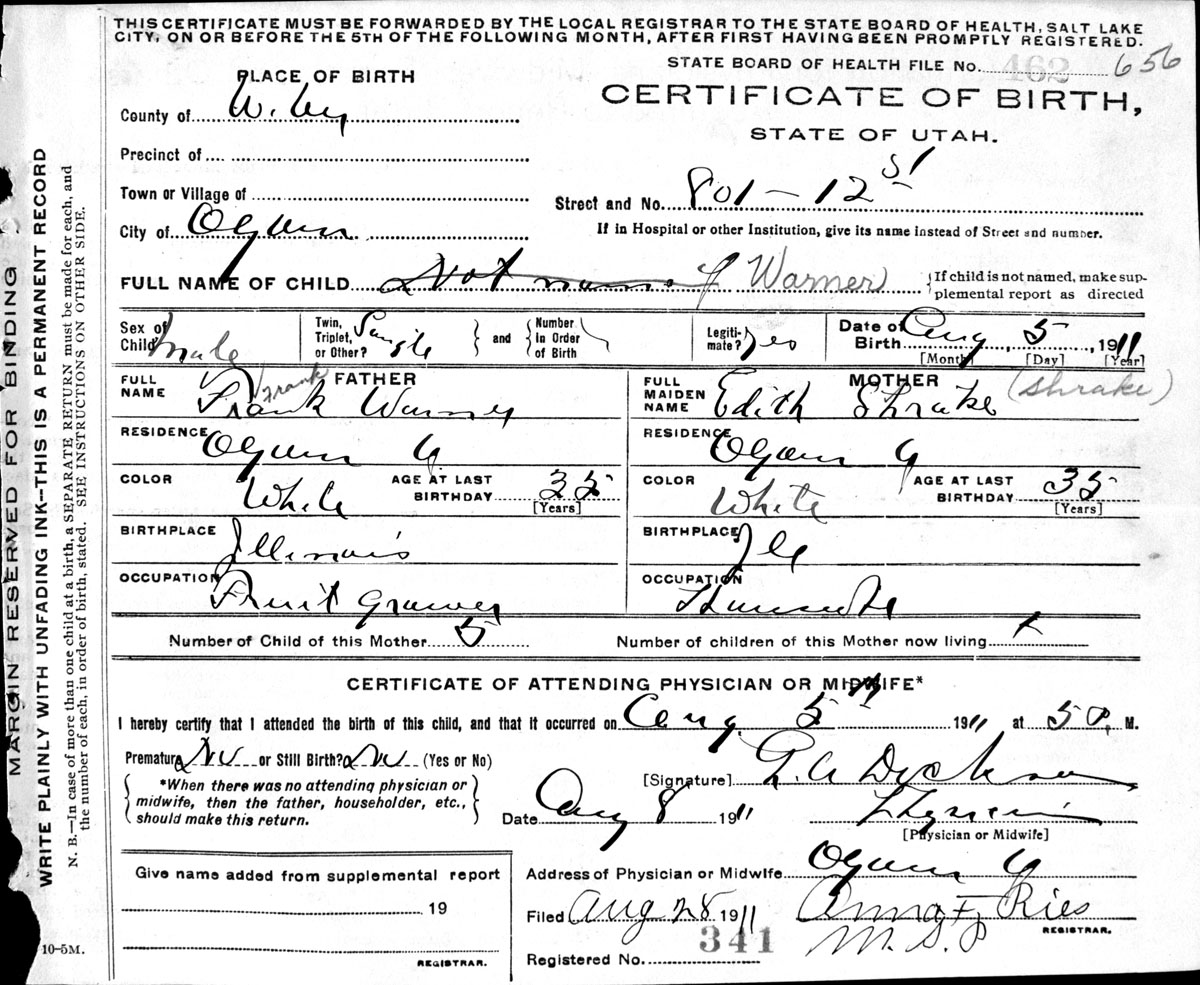 THIS CERTIFICATE MUST BE FORWARDED BY THE LOCAL REGISTRAR TO THE STATE BOARD OF HEALTH, SALT LAKE
CITY, ON OR BEFORE THE 5TH OF THE FOLLOWING MONTH, AFTER FIRST HAVING BEEN PROMPTLY REGISTERED.
STATE BOARD OF HEALTH FILE No. 462 656
PLACE OF BIRTH
CERTIFICATE OF BIRTH,
STATE OF UTAH.
County of
Precinct of
Town or Village of
Street and No. 801 - 12 St
City of Ogden
If in Hospital or other Institution, give its name instead of Street and number.
FULL NAME OF CHILD Not named Warner
{If child is not named, make supplemental report as directed
Sex of Child male
Twin, Triplet, or Other? Single
and
Number in Order of Birth
Legitimate? yes
Date of Birth Aug 5, 1911
[Month] [Day] [Year]
FATHER
FULL NAME Frank Warner
Frank
MOTHER
FULL MAIDEN NAME Edith Shrake (Shrake)
RESIDENCE Ogden U
RESIDENCE Ogden U
COLOR White
AGE AT LAST BIRTHDAY 35
[Years]
COLOR White
AGE AT LAST BIRTHDAY 35
[Years]
BIRTHPLACE Illinois
BIRTHPLACE Ill
OCCUPATION Fruit Grower
OCCUPATION Housewife
Number of Child of this Mother 5
Number of children of this Mother now living
CERTIFICATE OF ATTENDING PHYSICIAN OR MIDWIFE*
I hereby certify that I attended the birth of this child, and that it occurred on Aug 5th 1911 at 5 P. M.
Premature No or Still Birth? No (Yes or No)
*When there was no attending physician or midwife, then the father, householder, etc., should make this return.
[Signature]
Date Aug 8 1911
Physician
[Physician or Midwife]
Give name added from supplemental report
19
REGISTRAR.
Address of Physician or Midwife Ogden U
Filed Aug 28 1911 Anna F. Ries
REGISTRAR.
341
Registered No.
MARGIN RESERVED FOR BINDING
WRITE PLAINLY WITH UNFADING INK—THIS IS A PERMANENT RECORD
N. B.—In case of more than one child at a birth, a SEPARATE RETURN must be made for each, and
the number of each, in order of birth, stated. SEE INSTRUCTIONS ON OTHER SIDE.
10-5M.